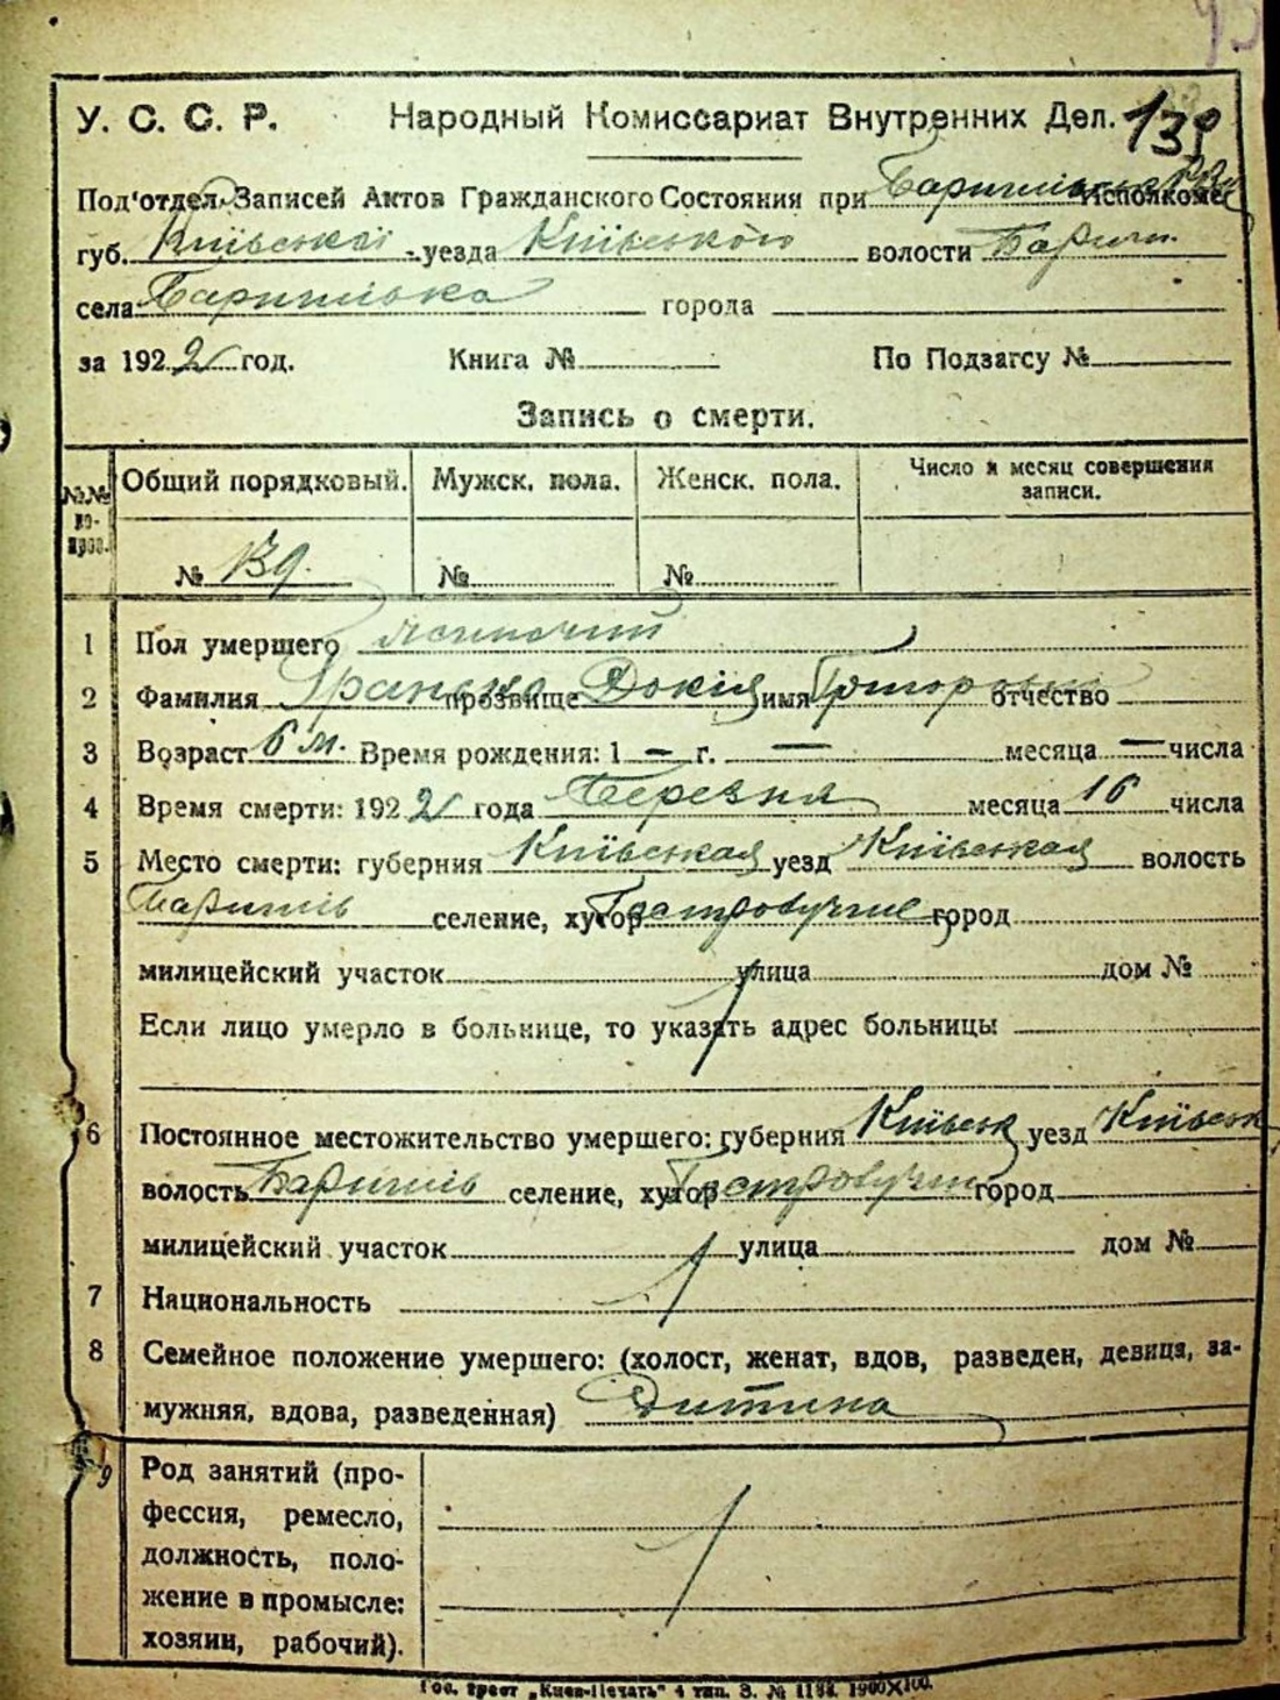 У. С. С. Р. Народный Комиссариат Внутренних Дел. 139
Под'отдел Записей Актов Гражданского Состояния при Исполкоме
губ. Київської уезда Київського волости Бариш.
села Баришівка города
за 1922 год. Книга № По Подзагсу №
Запись о смерти.
№№ во-прос. Общий порядковый. Мужск. пола. Женск. пола. Число и месяц совершения записи.
№ 139. № №
1 Пол умершего жіночий
2 Фамилия прозвище Докія имя отчество
3 Возраст 6 м. Время рождения: 1 — г. — месяца — числа
4 Время смерти: 1922 года Березня месяца 16 числа
5 Место смерти: губерния Київская уезд Київская волость
Баришів селение, хутор город
милицейский участок улица дом №
Если лицо умерло в больнице, то указать адрес больницы
6 Постоянное местожительство умершего: губерния Київськ уезд Київськ
волость Баришів селение, хутор город
милицейский участок улица дом №
7 Национальность
8 Семейное положение умершего: (холост, женат, вдов, разведен, девица, за-
мужняя, вдова, разведенная) Дитина
9 Род занятий (про-
фессия, ремесло,
должность, поло-
жение в промысле:
хозяин, рабочий).
Гос. трест „Киев-Печать" 4 тип. З. №